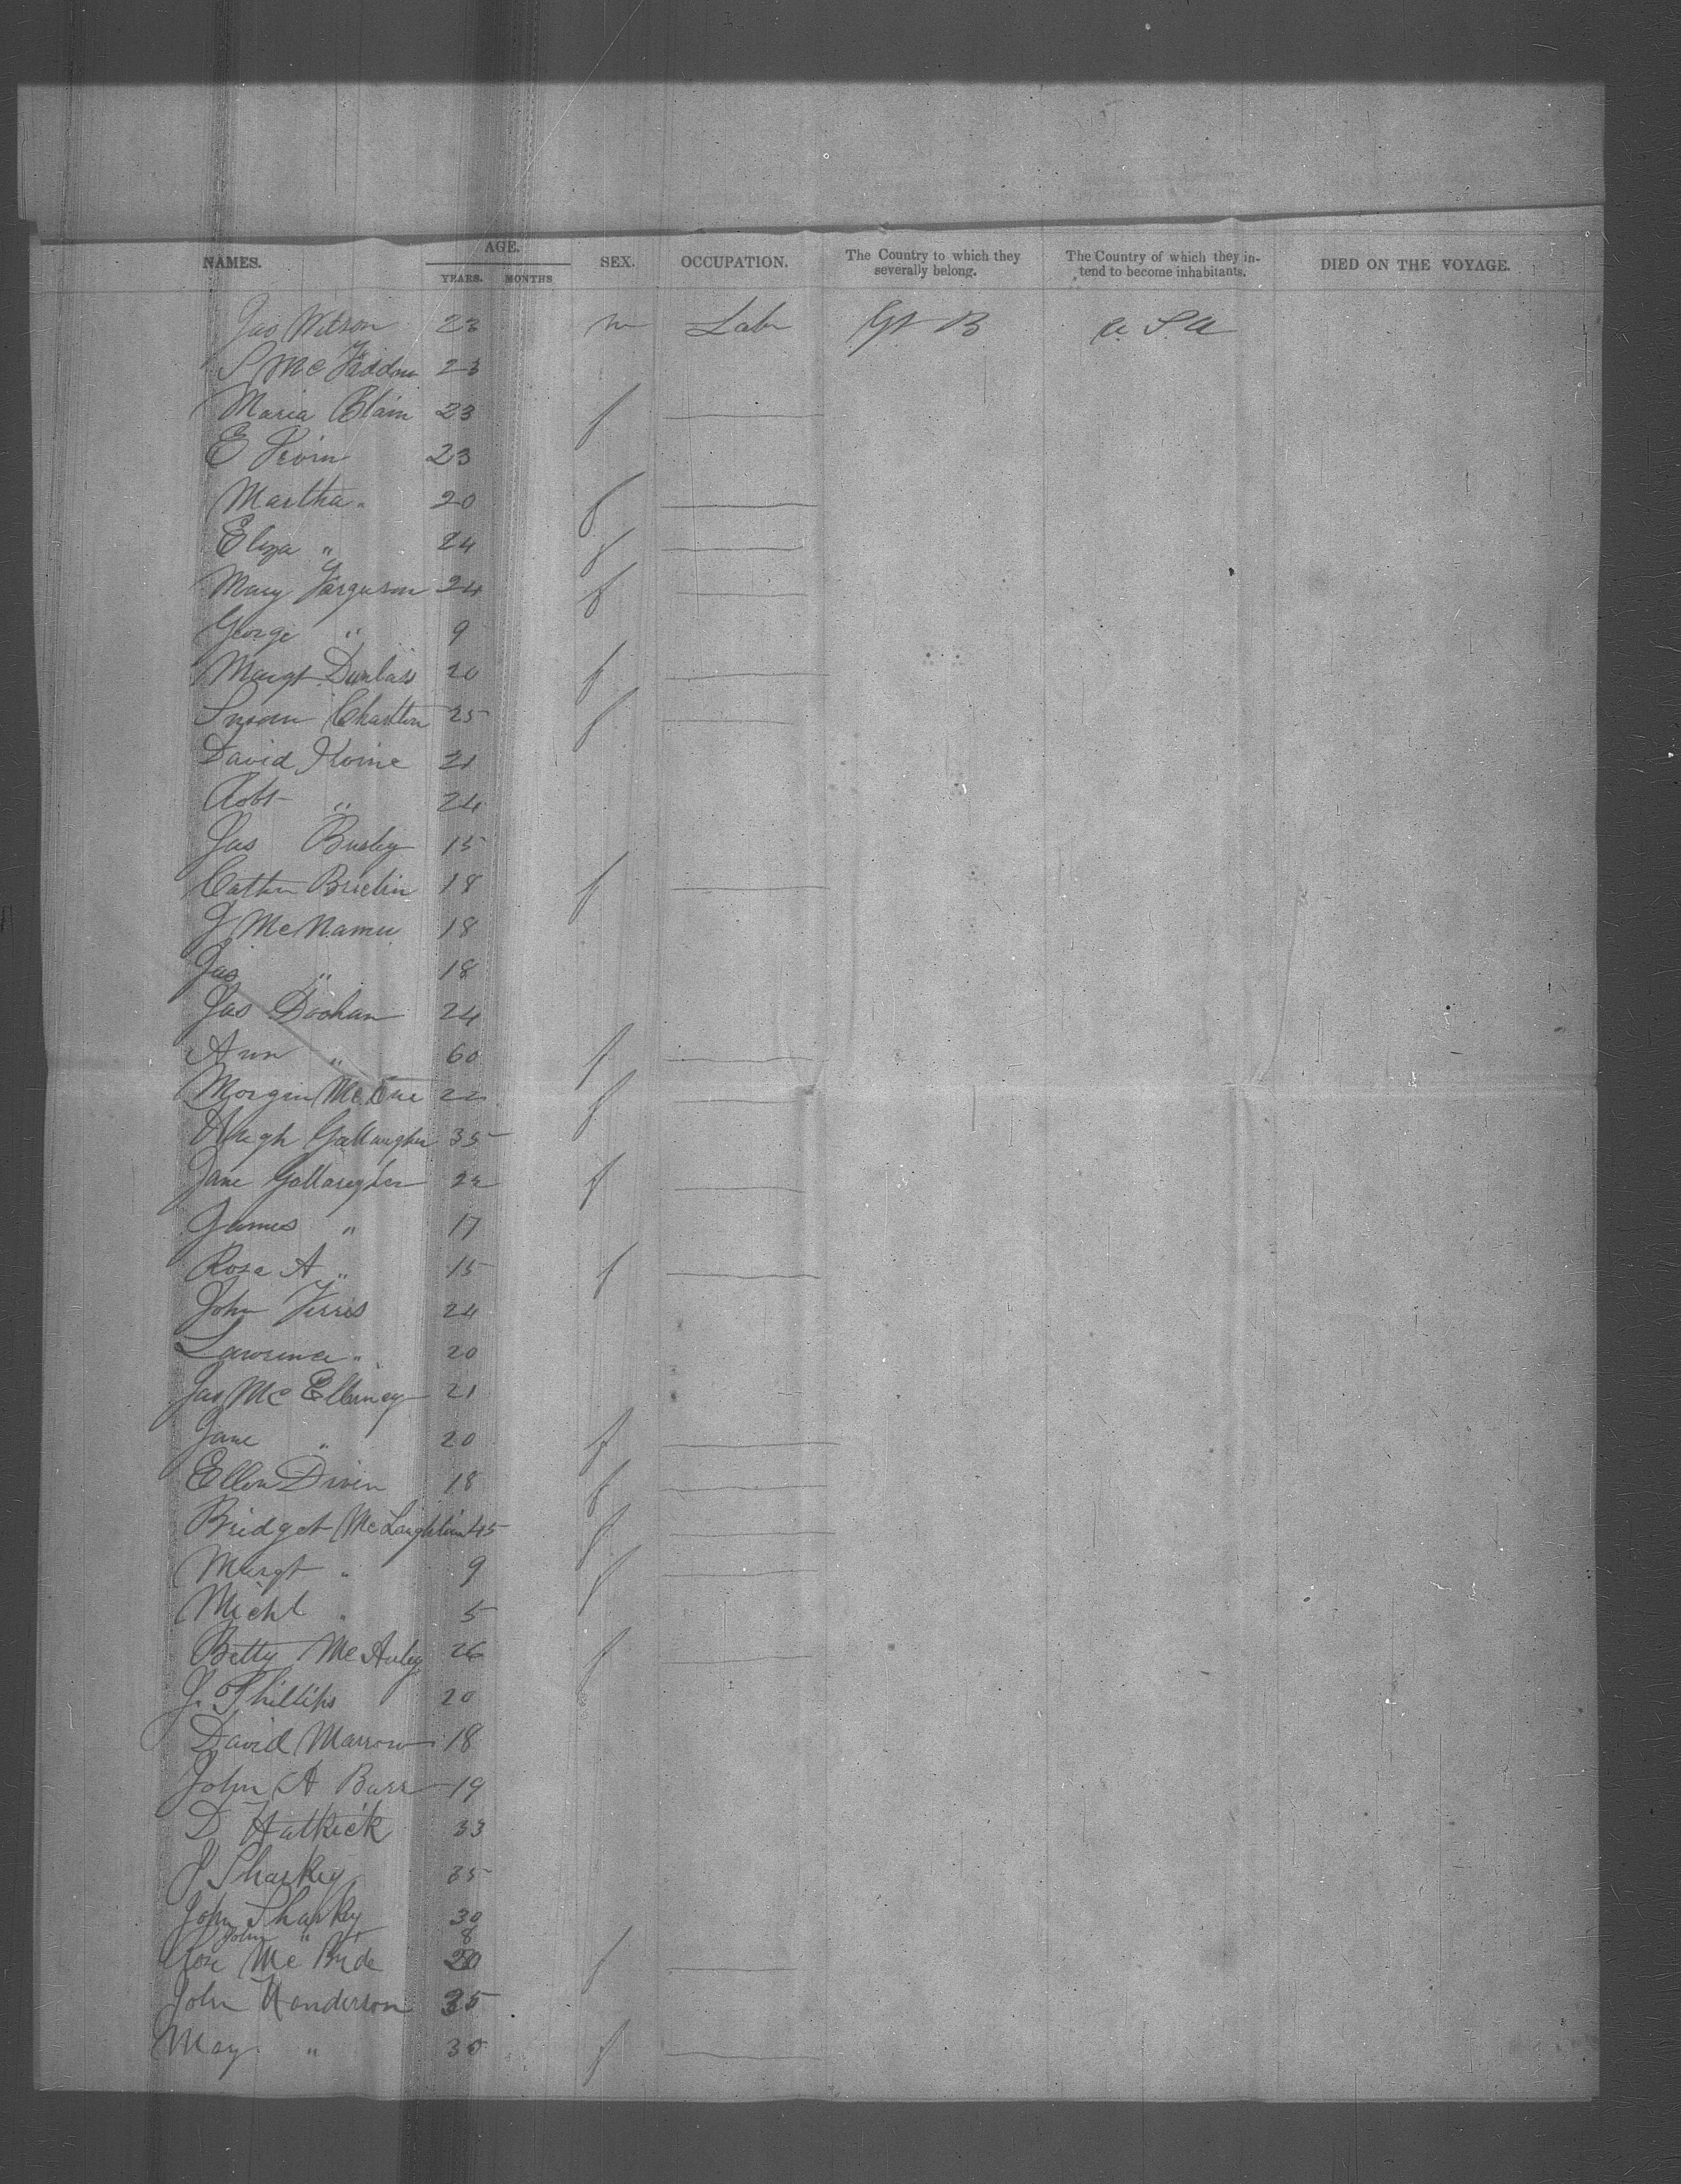 NAMES. AGE. YEARS. MONTHS SEX. OCCUPATION. The Country to which they severally belong. The Country of which they intend to become inhabitants. DIED ON THE VOYAGE.
Jas Watson 23 m Labr Gt B U.S.A
S McFaddon 23
Maria Blain 23 f
E 23
Martha " 20 f
Eliza " 24 f
Mary Ferguson 24 f
George " 9
Margt Dunlass 20 f
Susan Charlton 25 f
David Irvine 21
Robt " 24
Jas Busby 15
Cathn 18 f
J McNamee 18
Jas " 18
Jas Doohan 24
Ann " 60 f
22 f
Hugh Gallaugher 35
Jane Gallaugher 22 f
James " 17
Rosa A " 15 f
John Ferris 24
Lawrence " 20
Jas McElhiney 21
Jane " 20 f
Ellen Diven 18 f
Bridget McLaughlin 45 f
Margt " 9 f
Michl " 5
Betty McAuley 26 f
J. Phillips 20
David Marrow 18
John A Barr 19
D Hatkick 33
J Sharkey 35
John Sharkey 30
John " 8
McBride 20 f
John Henderson 35
May " 30 f